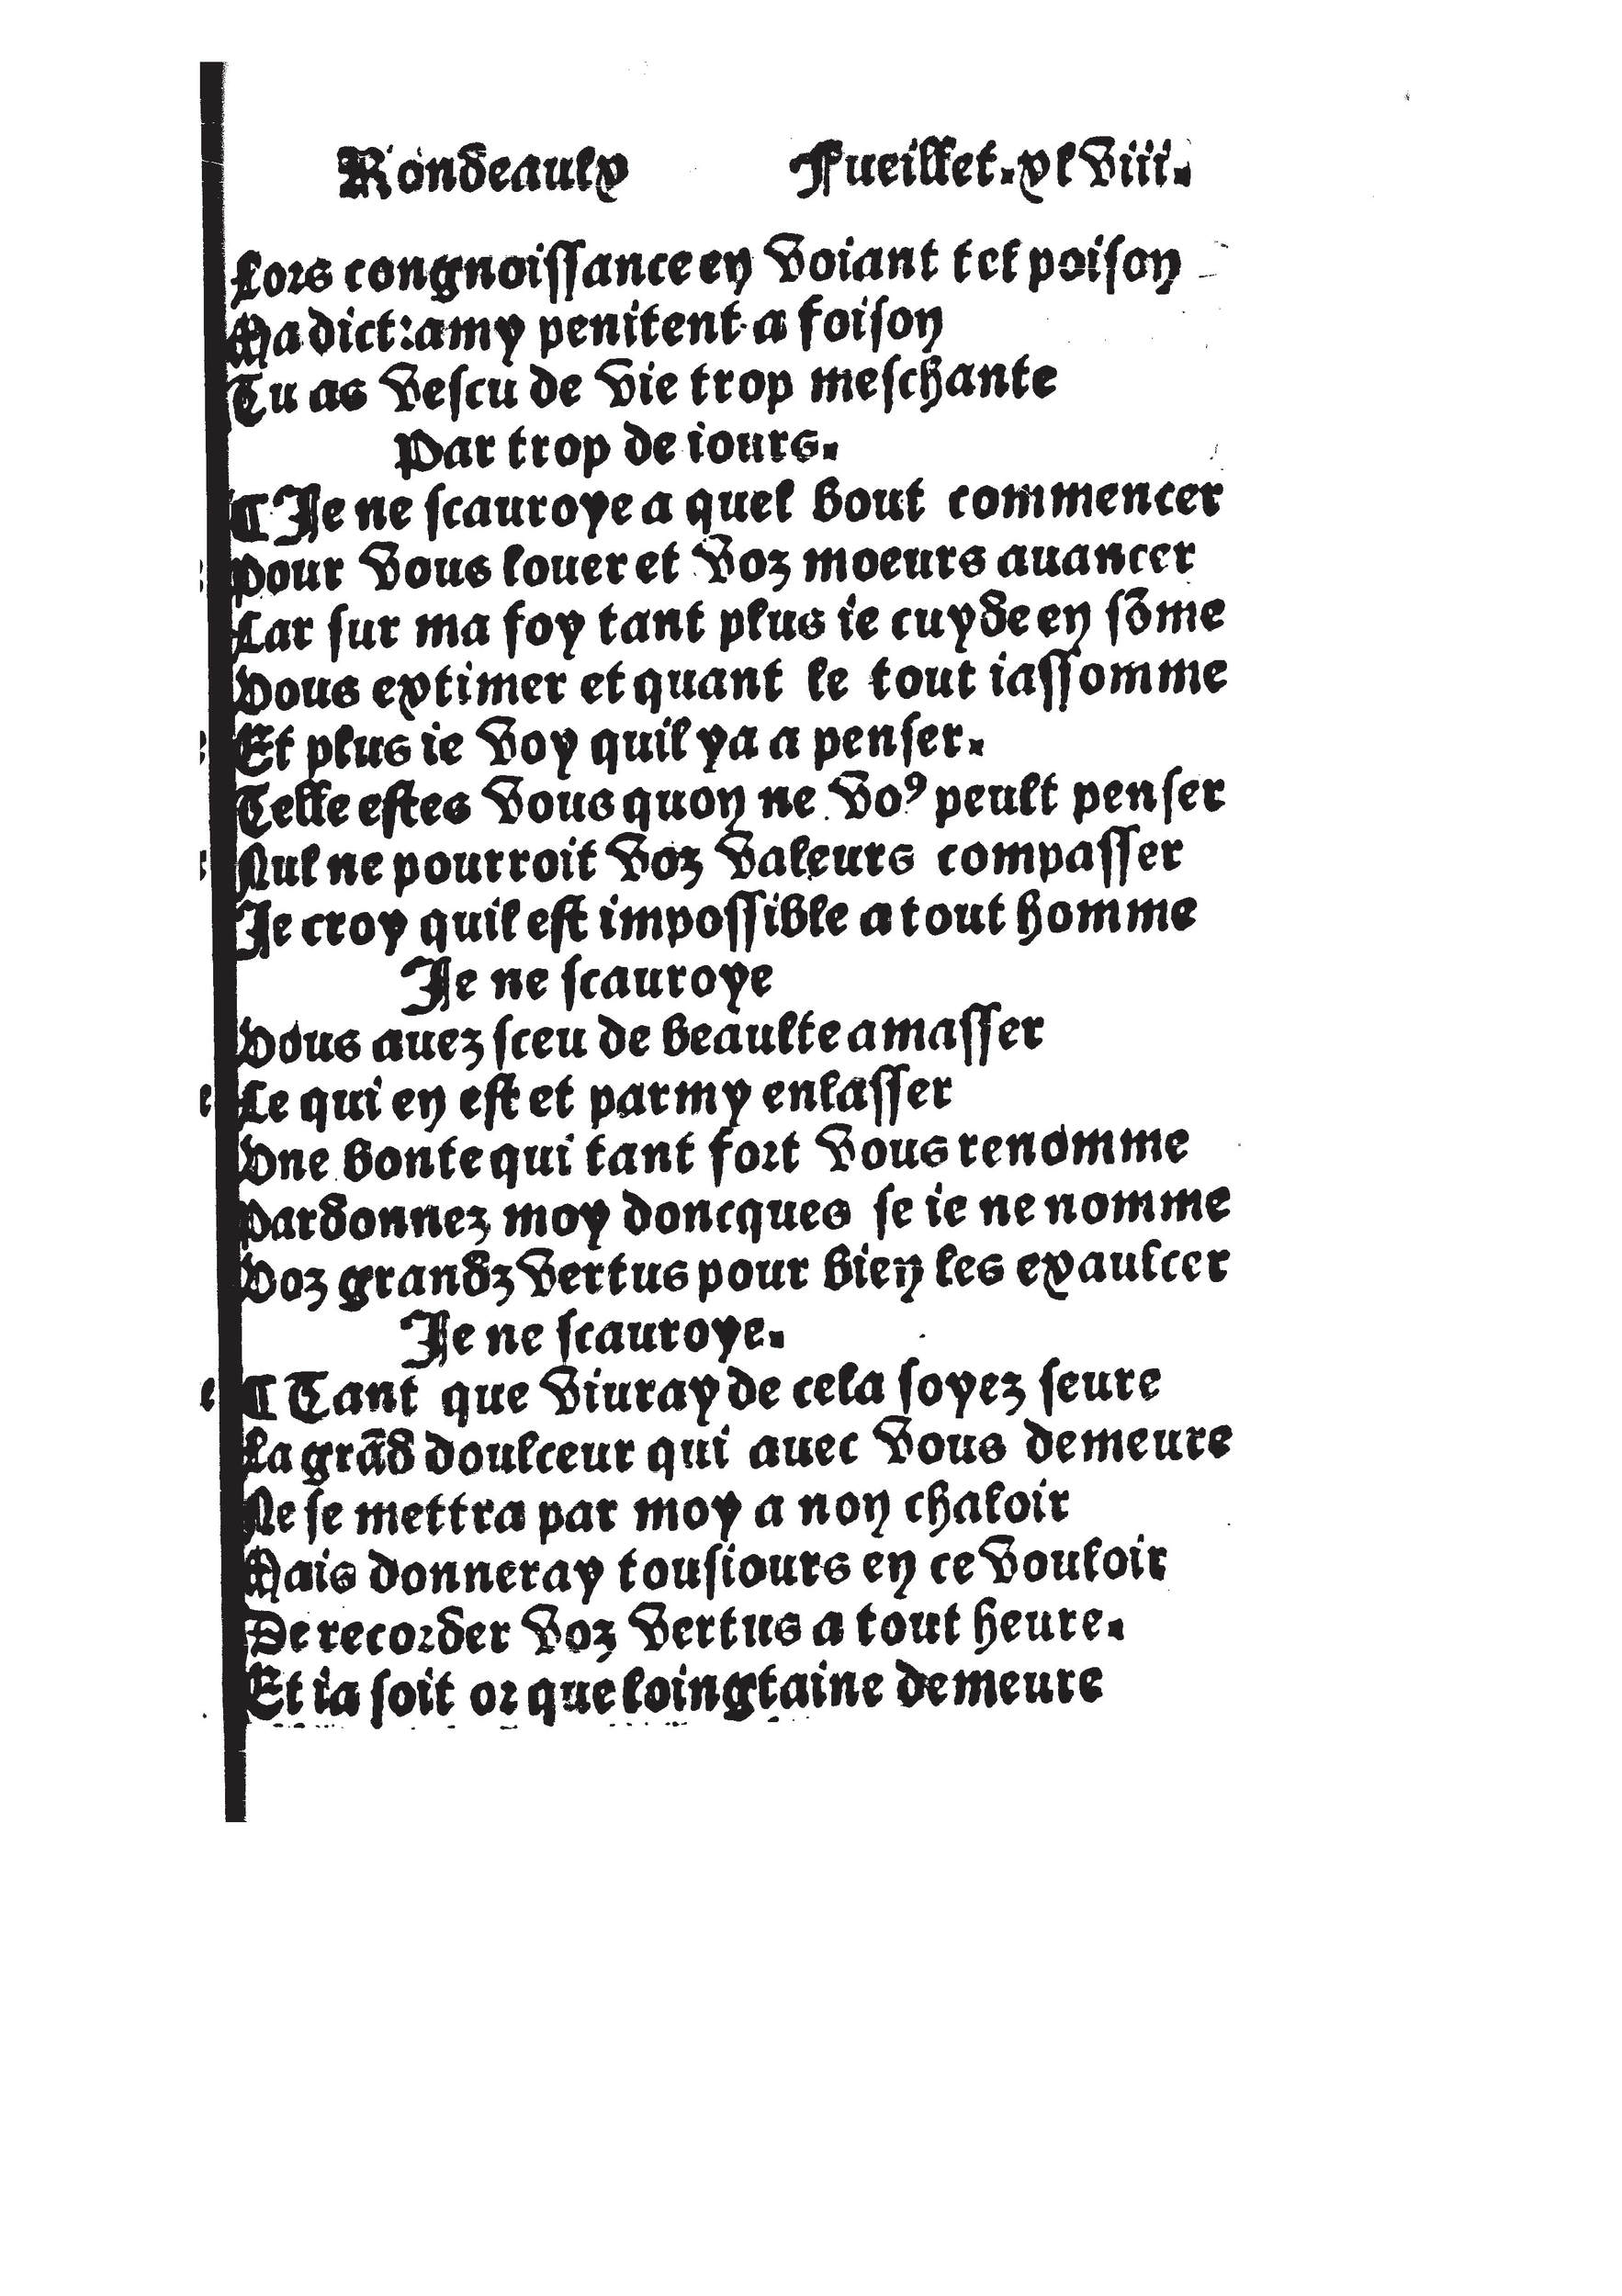 Rondeaulx Fueillet.xlviii.
Lors congnoissance en voiant tel poison
Ma dict:amy penitent a foison
Tu as vescu de vie trop meschante
Par trop de iours.
¶ Je ne scauroye a quel bout commencer
Pour vous louer et voz moeurs auancer
Car sur ma foy tant plus ie cuyde en sõme
Vous extimer et quant le tout iassomme
Et plus ie voy quil ya a penser.
Telle estes vous quon ne voꝰ peult penser
Nul ne pourroit voz valeurs compasser
Je croy quil est impossible a tout homme
Je ne scauroye
Vous auez sceu de beaulte amasser
Ce qui en est et parmy enlasser
Vne bonte qui tant fort vous renomme
Pardonnez moy doncques se ie ne nomme
Voz grandz vertus pour bien les exaulcer
Je ne scauroye.
¶ Tant que viuray de cela soyez seure
La grãd doulceur qui auec vous demeure
Ne se mettra par moy a non chaloir
Mais donneray tousiours en ce vouloir
De recorder voz vertus a tout heure.
Et ia soit or que loingtaine demeure